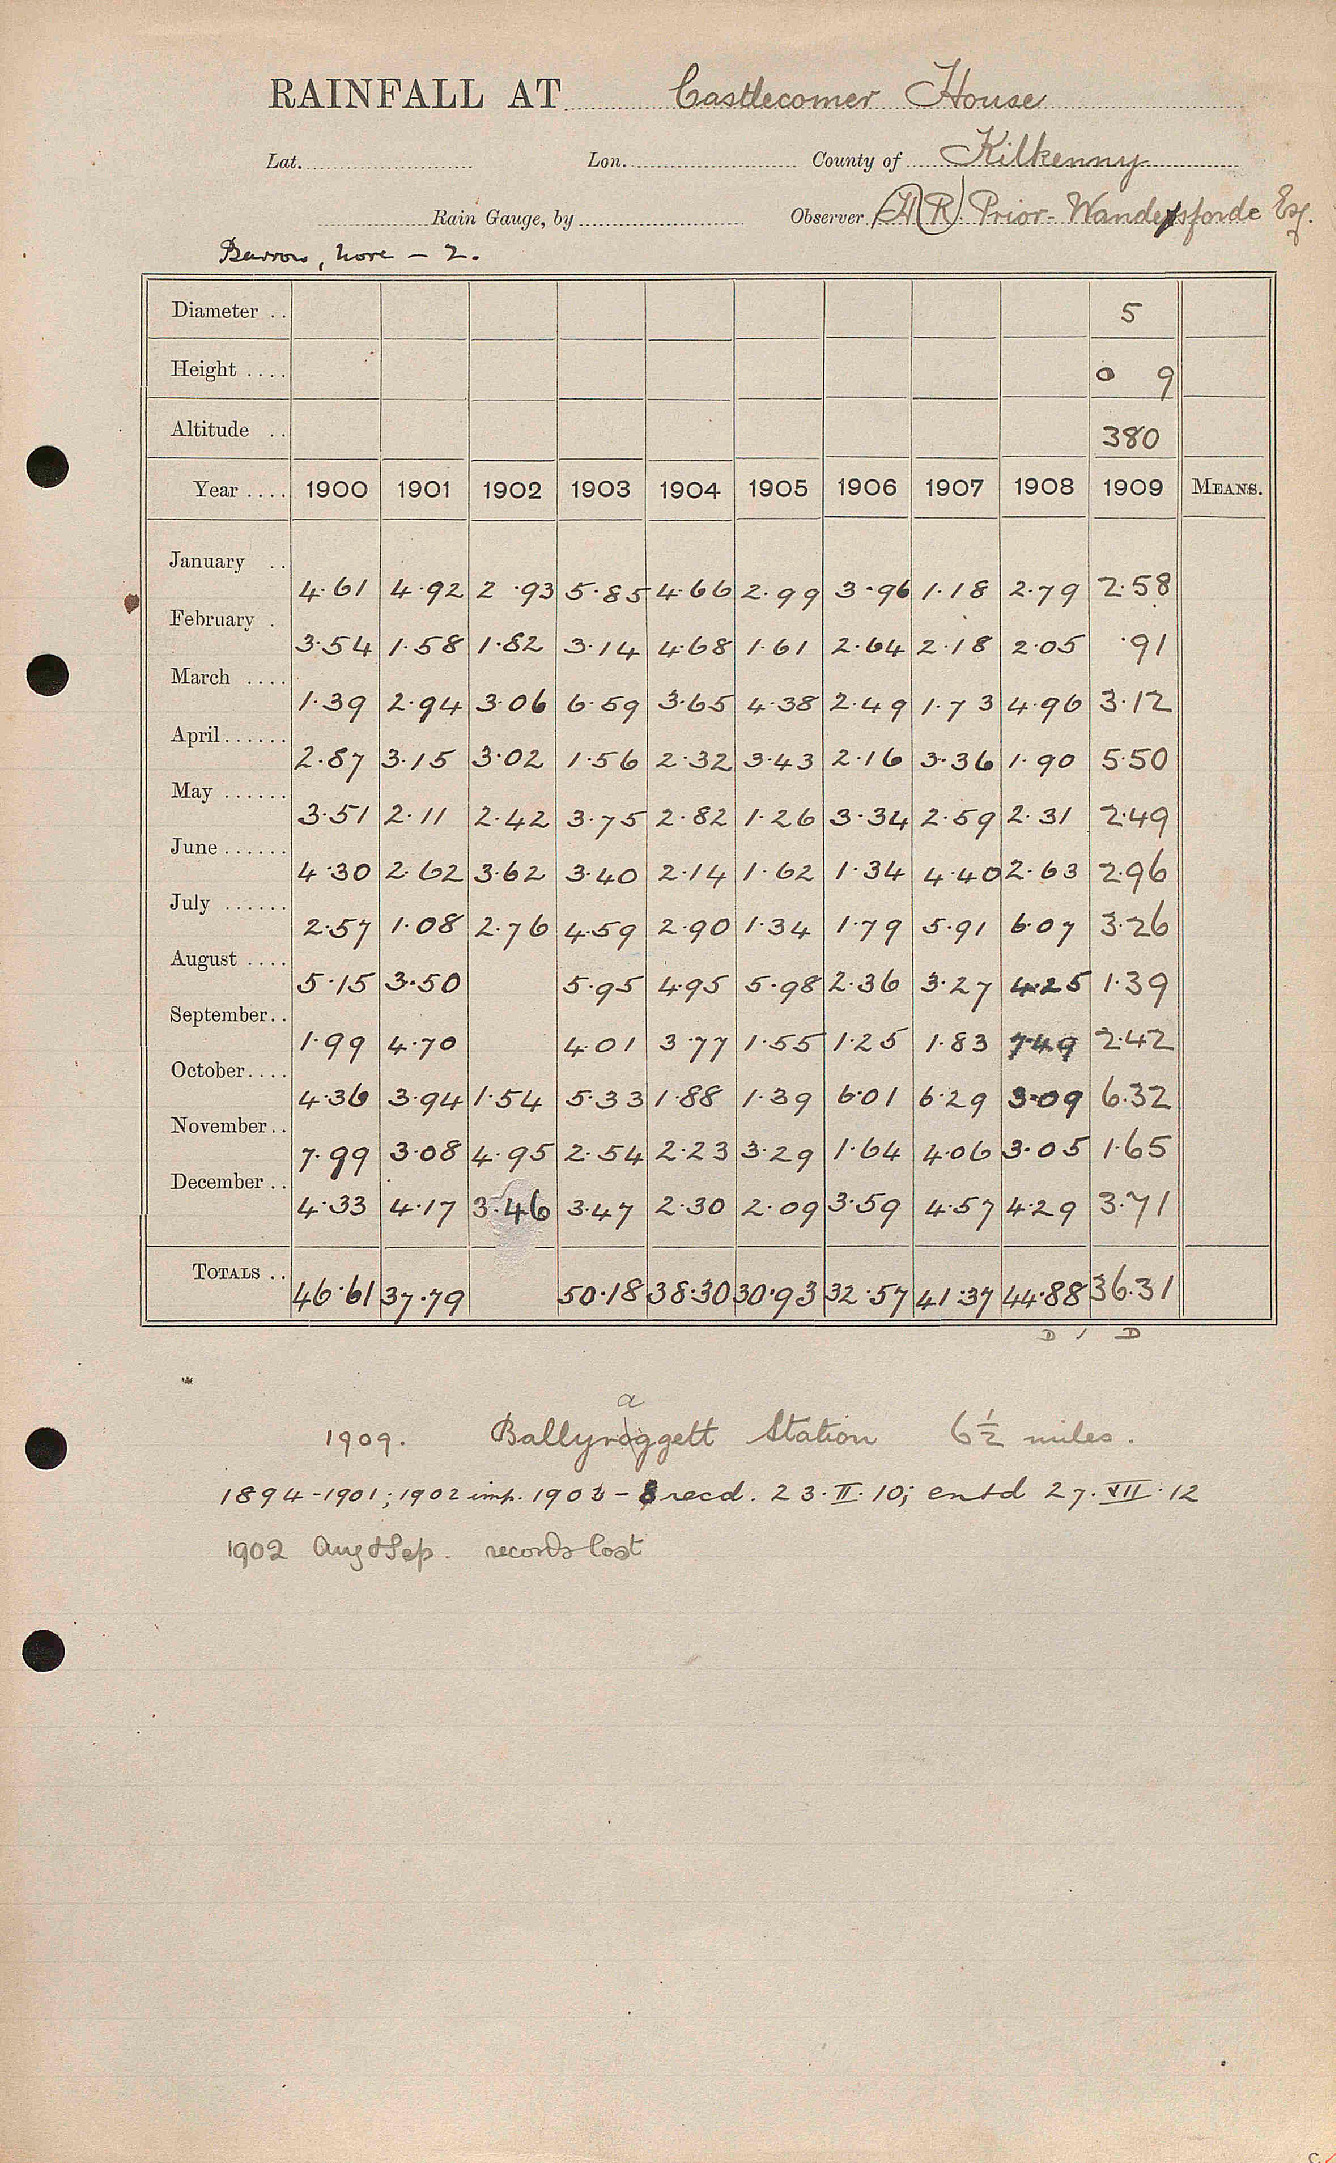 RAINFALL AT Castlecomer House
Lat. Lon. County of Kilkenny
Rain Gauge, by Observer (H (R) Prior-Wandesforde Esq.
Barrow, Nore - 2.
Diameter .. 5
Height .... 0 9
Altitude .. 380
Year .... 1900 1901 1902 1903 1904 1905 1906 1907 1908 1909 MEANS.
January .. 4.61 4.92 2.93 5.85 4.66 2.99 3.96 1.18 2.79 2.58
February . 3.54 1.58 1.82 3.14 4.68 1.61 2.64 2.18 2.05 .91
March .... 1.39 2.94 3.06 6.59 3.65 4.38 2.49 1.73 4.96 3.12
April...... 2.87 3.15 3.02 1.56 2.32 3.43 2.16 3.36 1.90 5.50
May ...... 3.51 2.11 2.42 3.75 2.82 1.26 3.34 2.59 2.31 2.49
June...... 4.30 2.62 3.62 3.40 2.14 1.62 1.34 4.40 2.63 2.96
July ...... 2.57 1.08 2.76 4.59 2.90 1.34 1.79 5.91 6.07 3.26
August .... 5.15 3.50 5.95 4.95 5.98 2.36 3.27 4.25 1.39
September.. 1.99 4.70 4.01 3.77 1.55 1.25 1.83 7.49 2.42
October.... 4.36 3.94 1.54 5.33 1.88 1.39 6.01 6.29 3.09 6.32
November.. 7.99 3.08 4.95 2.54 2.23 3.29 1.64 4.06 3.05 1.65
December .. 4.33 4.17 3.46 3.47 2.30 2.09 3.59 4.57 4.29 3.71
TOTALS .. 46.61 37.79 50.18 38.30 30.93 32.57 41.37 44.88 36.31
D / D
a
1909. Ballyroggett Station 6½ miles.
1894-1901; 1902 imp. 1903-8 recd. 23.II.10; entd 27.VII.12
1902 Aug & Sep. records lost